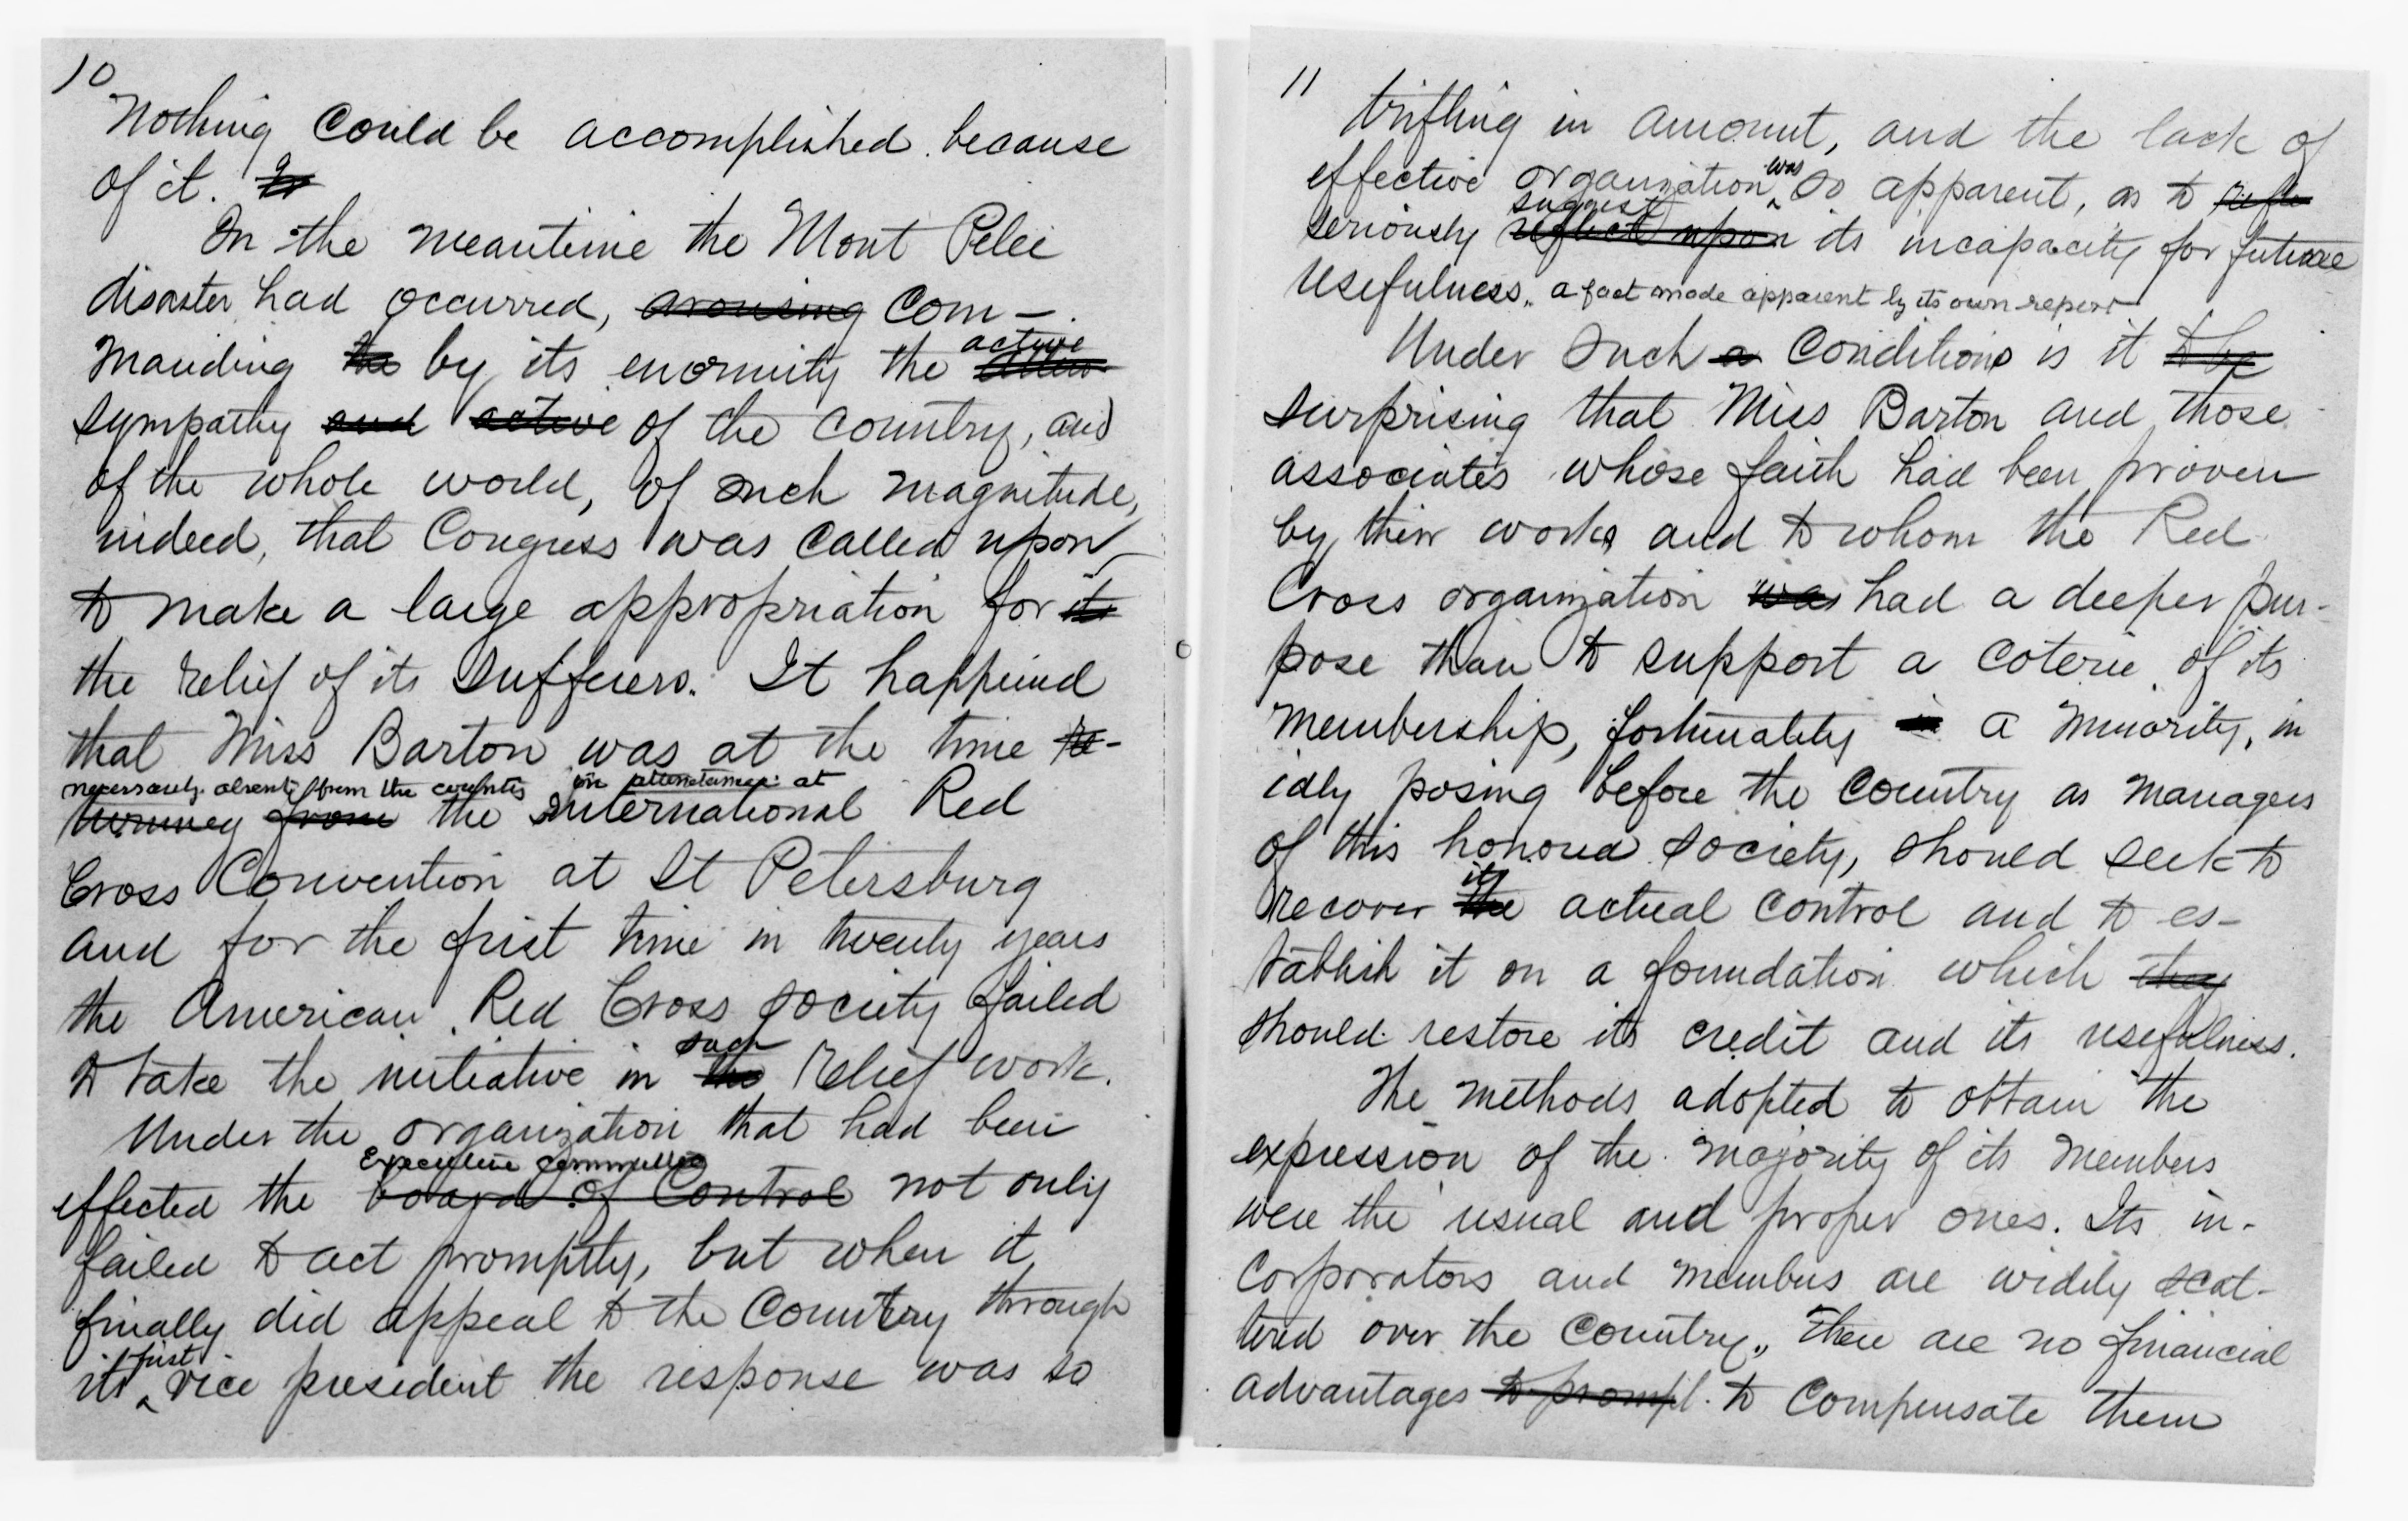 10
Nothing could be accomplished because
of it. In
In the meantime the Mont Pelée
disaster had occurred, arousing com-
manding the by its enormity the active
sympathy and active of the country, and
of the whole world, of such magnitude,
indeed, that Congress was called upon
to make a large appropriation for its
the relief of its sufferers. It happened
that Miss Barton was at the time re-
necessarily absent from the country in attendance at
turning from the International Red
Cross Convention at St Petersburg
and for the first time in twenty years
the American Red Cross society failed
such
to take the initiative in the relief work.
Under the organization that had been
Executive Committee
effected the board of Control not only
failed to act promptly, but when it
finally did appeal to the Country through
first
its vice president the response was so
11
trifling in amount, and the lack of
was
effective organization so apparent, as to refle
suggest
seriously reflect upon its incapacity for future
usefulness, a fact made apparent by its own report
Under such a conditions is it to be
surprising that Miss Barton and those
associates whose faith had been proven
by their works and to whom the Red
Cross organization was had a deeper pur-
pose than to support a coterie of its
membership, fortunately in a minority, in
idly posing before the country as managers
of this honored society, should seek to
its
recover the actual control and to es-
tablish it on a foundation which they
should restore its credit and its usefulness.
The methods adopted to obtain the
expression of the majority of its members
were the usual and proper ones. Its in-
corporators and members are widely scat-
tered over the country, there are no financial
advantages to prompt to compensate them